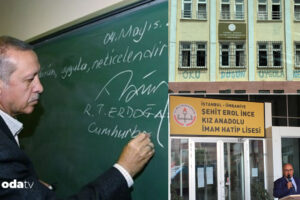 04 Mayıs.
uygula, neticelendir
R.T. ERDOĞA
Cumhurba
OKU DÜŞÜN UYGULA
İSTANBUL - ÜMRANİYE
ŞEHİT EROL İNCE
KIZ ANADOLU
İMAM HATİP LİSESİ
odatv